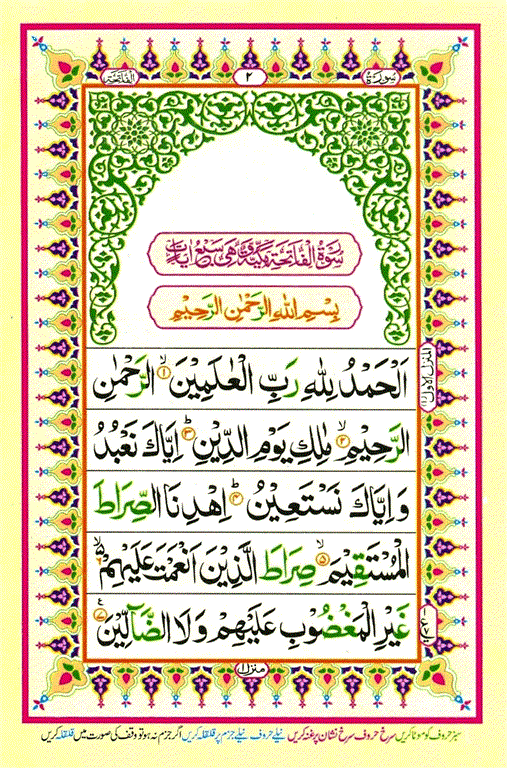 سورة
٢
الفاتحة
سورة الفاتحة مكية وهي سبع ايات
بِسْمِ اللهِ الرَّحْمٰنِ الرَّحِيْمِ
المنزل الاول ١
اَلْحَمْدُ لِلّٰهِ رَبِّ الْعٰلَمِيْنَ ۙ‏﴿۱﴾ الرَّحْمٰنِ
الرَّحِيْمِ ۙ‏﴿۲﴾ مٰلِكِ يَوْمِ الدِّيْنِ ؕ‏﴿۳﴾ اِيَّاكَ نَعْبُدُ
وَ اِيَّاكَ نَسْتَعِيْنُ ؕ‏﴿۴﴾ اِهْدِنَا الصِّرَاطَ
الْمُسْتَقِيْمَ ۙ‏﴿۵﴾ صِرَاطَ الَّذِيْنَ اَنْعَمْتَ عَلَيْهِمْ ۙ‏﴿۶﴾
غَيْرِ الْمَغْضُوْبِ عَلَيْهِمْ وَلَا الضَّآلِّيْنَ ‏﴿۷﴾
منزل ١
سبز حروف کو موٹا کریں سرخ حروف سرخ نشان پر غنہ کریں نیلے حروف نیلے جزم پر قلقلہ کریں اگر جزم نہ ہو تو وقف کی صورت میں قلقلہ کریں